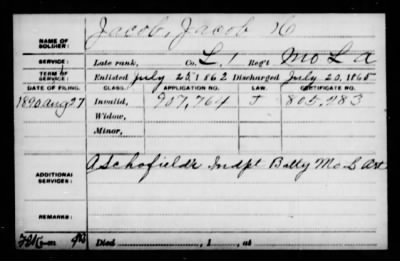 NAME OF SOLDIER: Jacobs, Jacob H
SERVICE: Late rank, Co. L, 1 Reg't Mo L A
TERM OF SERVICE: Enlisted July 25 1862 Discharged July 20, 1865
DATE OF FILING. CLASS. APPLICATION NO. LAW. CERTIFICATE NO.
1890 Aug 27 Invalid, 907,764 J 805,283
Widow,
Minor,
ADDITIONAL SERVICES: A Schofield's Indpt Batty Mo L Art
REMARKS:
Died , 1 , at